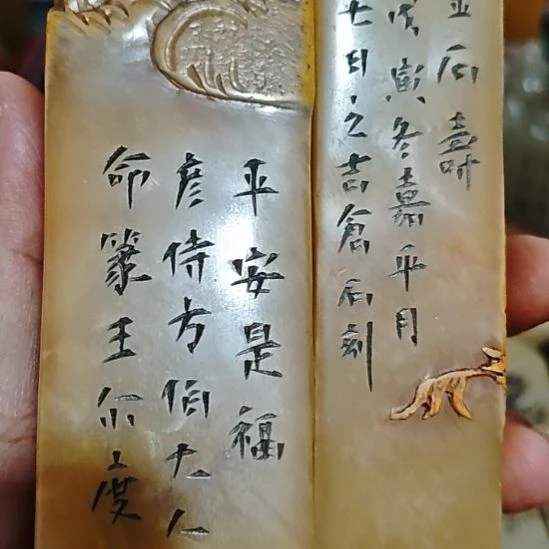 金石壽
戊寅冬嘉平月
七日之吉倉石刻
平安是福
彦侍方伯大人
命篆王尔度